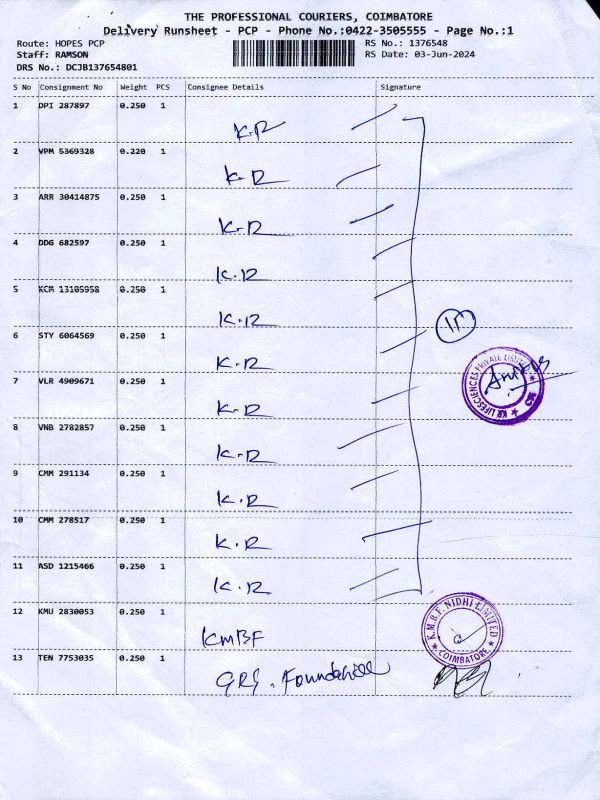 THE PROFESSIONAL COURIERS, COIMBATORE
Delivery Runsheet - PCP - Phone No.:0422-3505555 - Page No.:1
Route: HOPES PCP RS No.: 1376548
Staff: RAMSON RS Date: 03-Jun-2024
DRS No.: DCJB137654801
S No Consignment No Weight PCS Consignee Details Signature
1 DPI 287897 0.250 1
K.R
2 VPM 5369328 0.220 1
K.R
3 ARR 30414875 0.250 1
K.R
4 DDG 682597 0.250 1
K.R
5 KCM 13105958 0.250 1
K.R
6 STY 6064569 0.250 1
K.R
7 VLR 4909671 0.250 1
K.R
8 VNB 2782857 0.250 1
K.R
9 CMM 291134 0.250 1
K.R
10 CMM 278517 0.250 1
K.R
11 ASD 1215466 0.250 1
K.R
KR LIFESCIENCES PRIVATE LIMITED
12 KMU 2830053 0.250 1
KMBF
K.M.B.F. NIDHI LIMITED
COIMBATORE
13 TEN 7753035 0.250 1